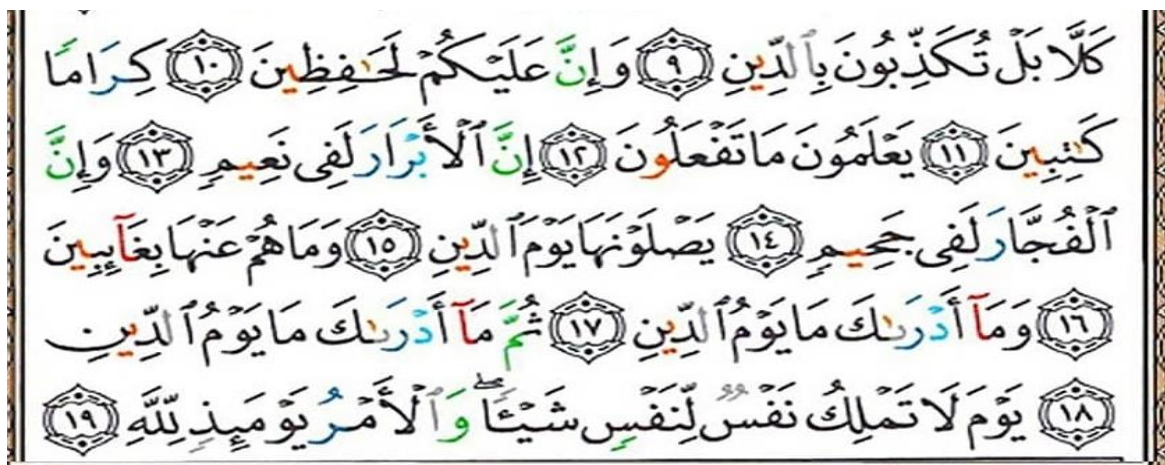 كَلَّا بَلْ تُكَذِّبُونَ بِٱلدِّينِ ٩ وَإِنَّ عَلَيْكُمْ لَحَـٰفِظِينَ ١٠ كِرَامًا
كَـٰتِبِينَ ١١ يَعْلَمُونَ مَا تَفْعَلُونَ ١٢ إِنَّ ٱلْأَبْرَارَ لَفِى نَعِيمٍ ١٣ وَإِنَّ
ٱلْفُجَّارَ لَفِى جَحِيمٍ ١٤ يَصْلَوْنَهَا يَوْمَ ٱلدِّينِ ١٥ وَمَا هُمْ عَنْهَا بِغَآئِبِينَ
١٦ وَمَآ أَدْرَىٰكَ مَا يَوْمُ ٱلدِّينِ ١٧ ثُمَّ مَآ أَدْرَىٰكَ مَا يَوْمُ ٱلدِّينِ
١٨ يَوْمَ لَا تَمْلِكُ نَفْسٌ لِّنَفْسٍ شَيْـًٔا ۖ وَٱلْأَمْرُ يَوْمَئِذٍ لِّلَّهِ ١٩